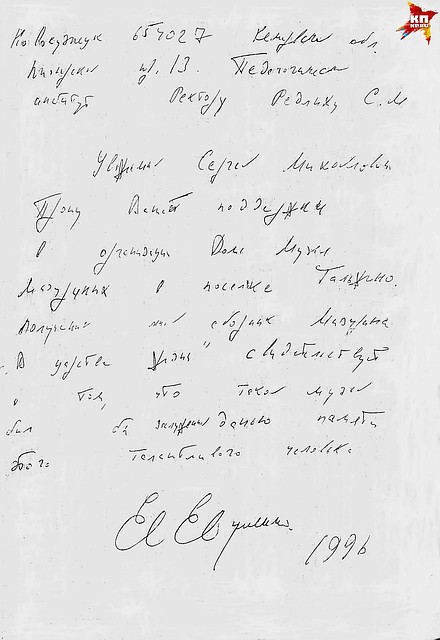 КП
KP.RU
Новокузнецк 654027 Кемеров обл.
Пионерский пр. 13. Педагогическ
институт Ректору Редлиху С. М
Уважаемый Сергей Михайлович
Прошу Вашей поддержки
в организации Дома Музея
Мазурина в поселке Тальжино.
Полученный мной сборник Мазурина
"В царстве жизни" свидетельствует
о том, что такой музей
был бы заслуженной данью памяти
этого талантливого человека
Ев Евтушенко.
1996